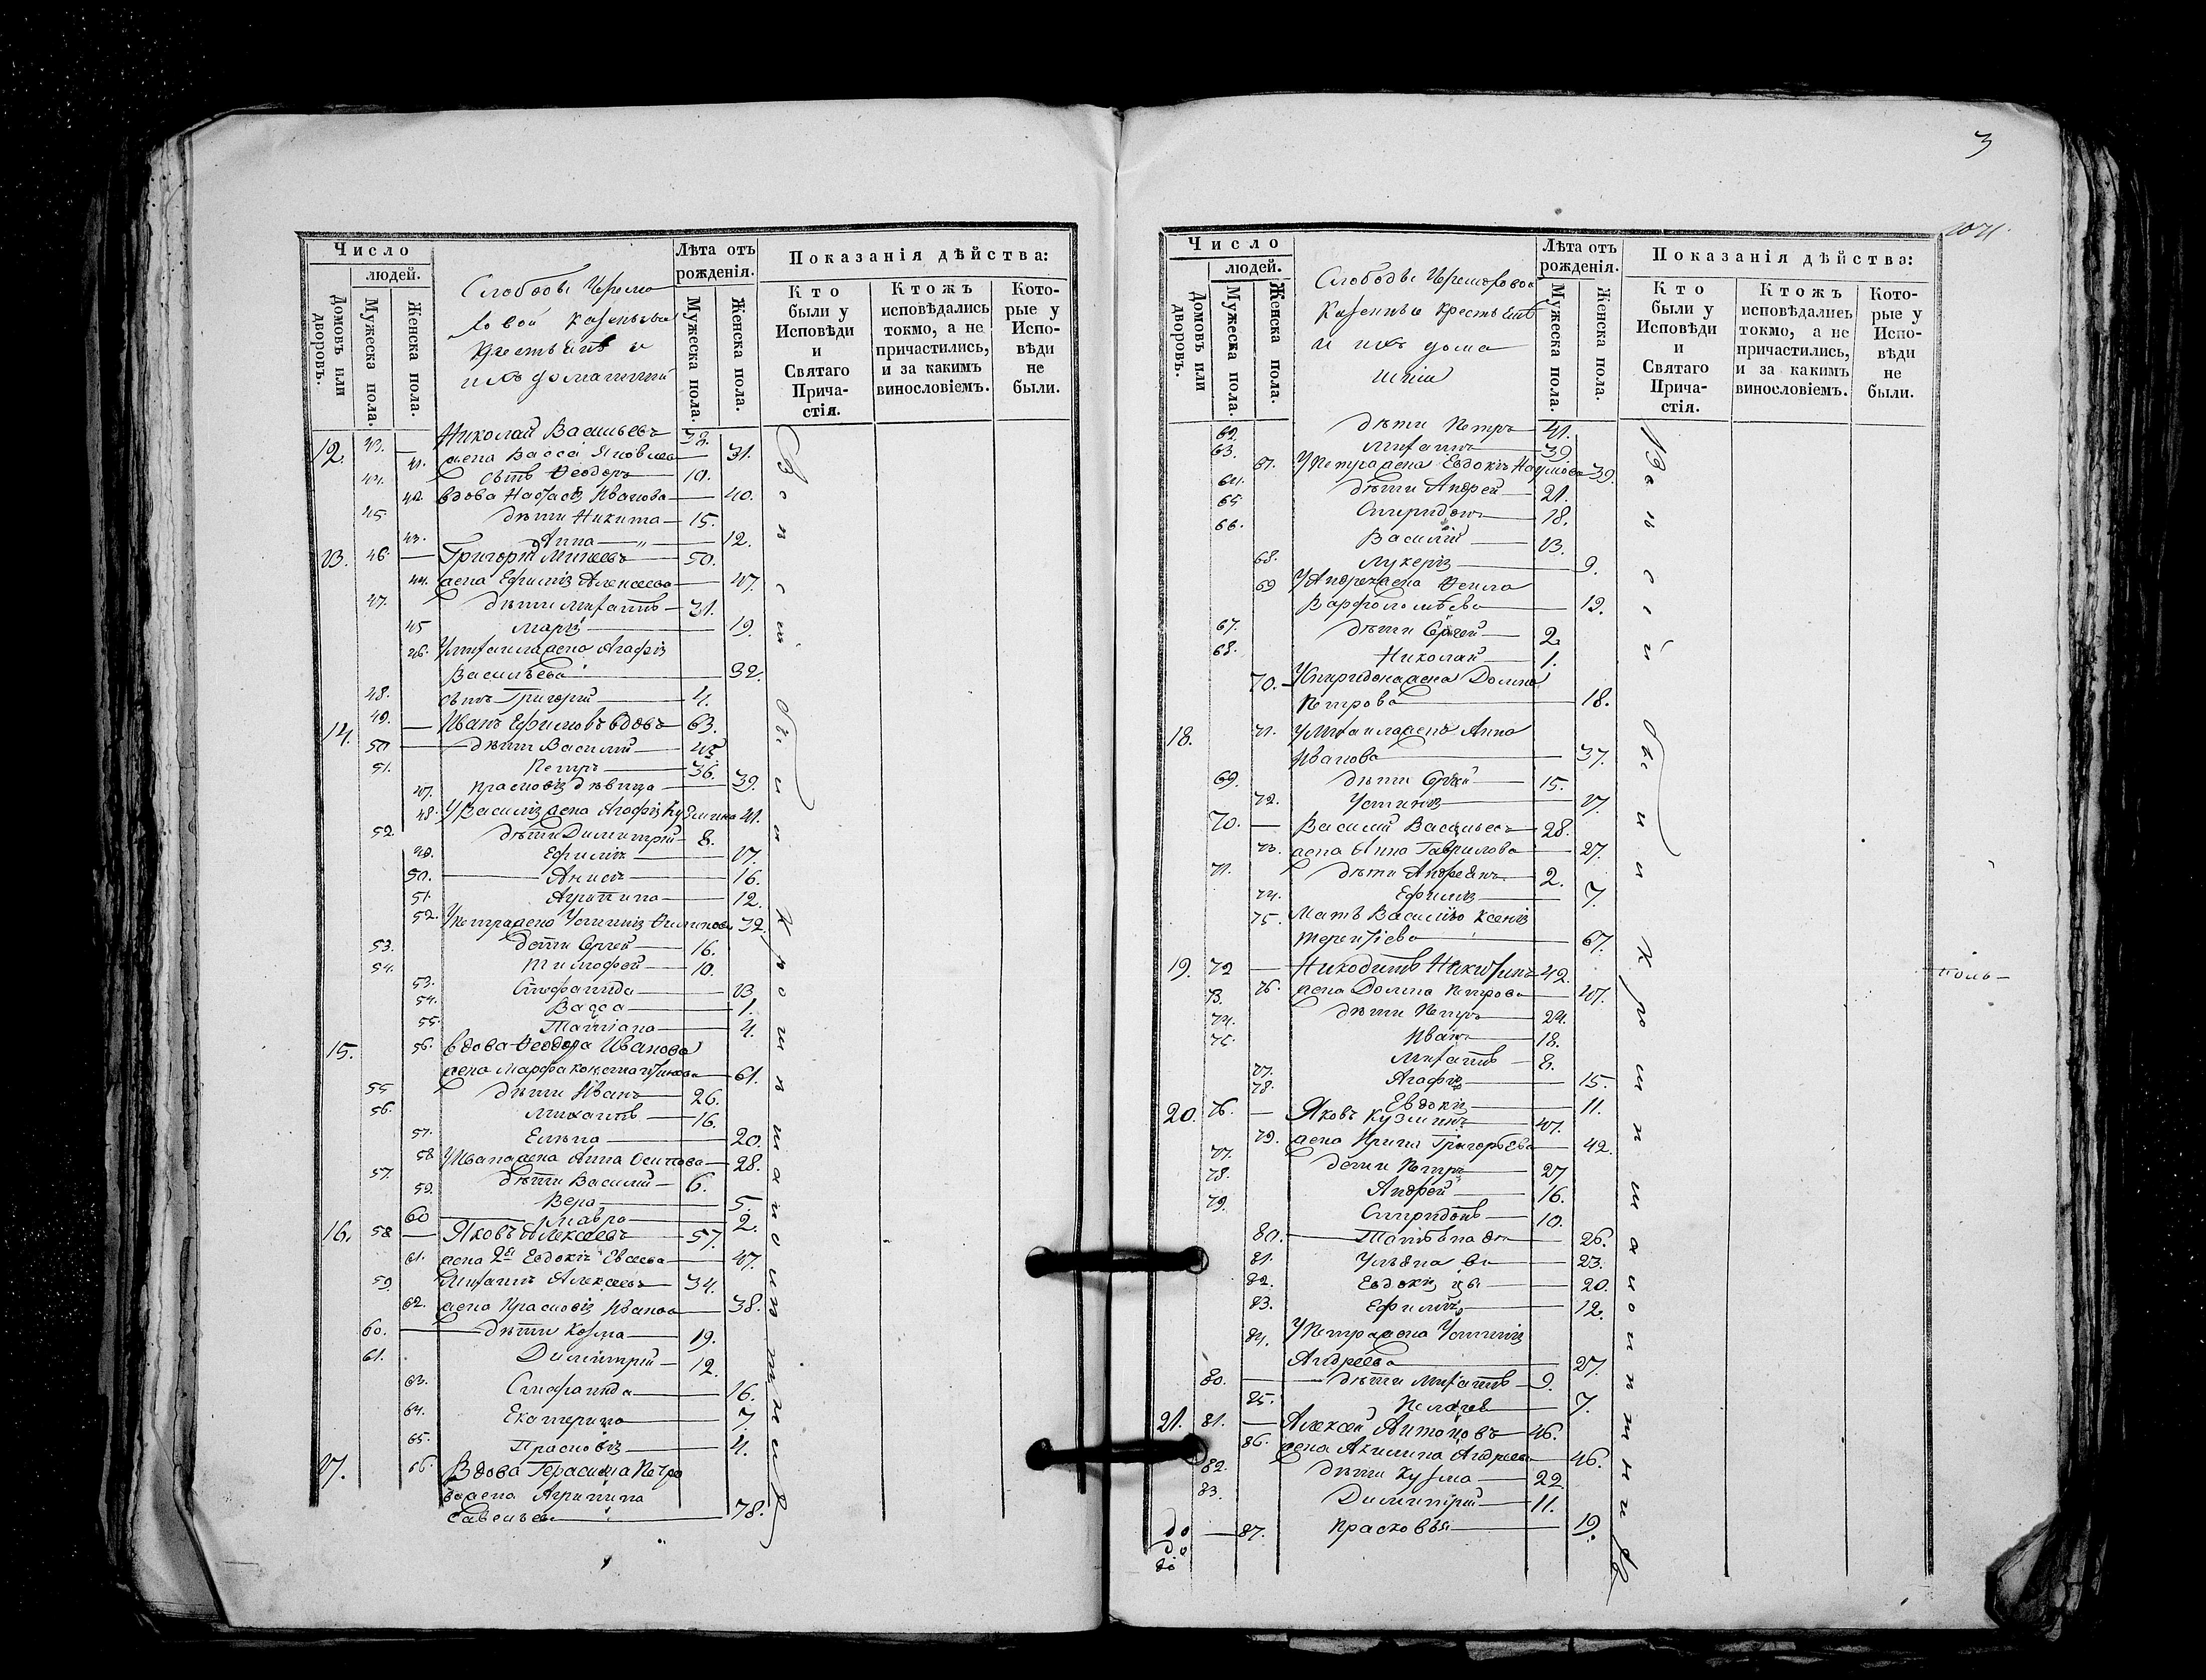 Число
людей.
Домовъ или дворовъ.
Мужеска пола.
Женска пола.
Лѣта отъ
рожденія.
Мужеска пола.
Женска пола.
Показанія дѣйства:
Кто
были у
Исповѣди
и
Святаго
Прича-
стія.
Ктожъ
исповѣдались
токмо, а не
причастились,
и за какимъ
винословіемъ.
Кото-
рые у
Испо-
вѣди
не
были.
12. 43. Николай Васильевъ 32.
41. жена Васса Яковлева 31.
44. Сынъ Ѳеодоръ 10.
42. вдова Настасія Иванова 40.
45 дѣти Никита 15.
43. Анна 12.
13. 46. Григорій 50.
44. жена Ефимія Алексеева 47.
47. дѣти Михаилъ 31.
45 Марія 19.
46. У Михаила жена Агафія
Васильева 32.
48. сынъ Григорій 4.
14. 49. Иванъ Ефимовъ вдовъ 63.
50 дѣти Василій 45
51. Петръ 36.
47. Прасковія дѣвица 39.
48. У Василія жена Агафія Кузмина 41.
52. дѣти Димитрій 8.
49. Ефимія 17.
50. Анисія 16.
51. Агрипина 12.
52. У Петра жена Устинія Филипова 32.
53. дѣти Сергей 16.
54. Тимофей 10.
53. Стефанида 13
54. Васса 1.
55. Татіана 4.
15. 56. вдова Ѳеодора Иванова
жена Марфа Константинова 61.
55 дѣти Иванъ 26.
56. Михаилъ 16.
57. Елена 20.
58 У Ивана жена Анна Осипова 28.
57. дѣти Василій 6.
59. Вера 5.
60 Мавра 2.
16. 58 Яковъ Алексеевъ 57.
61. жена 2я Евдокія Евсеева 47.
59. Михаилъ Алексеевъ 34.
62. жена Прасковія Иванова 38.
60. дѣти Козма 19.
61. Димитрій 12.
63. Стефанида 16.
64. Екатерина 7
65. Прасковія 4.
17. 66. Вдова Герасима Петро
ва жена Агрипина
Савельева 78.
3
Число
людей.
Домовъ или дворовъ.
Мужеска пола.
Женска пола.
Слободы
Казенные крестьяне
и ихъ дома
шніи
Лѣта отъ
рожденія.
Мужеска пола.
Женска пола.
Показанія дѣйства:
Кто
были у
Исповѣди
и
Святаго
Прича-
стія.
Ктожъ
исповѣдались
токмо, а не
причастились,
и за какимъ
винословіемъ.
Кото-
рые у
Испо-
вѣди
не
были.
62. дѣти Петръ 41.
63. Михаилъ 39
67. У Петра жена Евдокія Наумова 39.
64. дѣти Андрей 21.
65 Спиридонъ 18.
66. Василій 13.
68. Лукерія 9.
69 У Андрея жена Ѳекла
Варфоломѣева 19.
67. дѣти Сергей 2
68. Николай 1.
70. У Спиридона жена Домна
Петрова 18.
18. 71. У Михаила жена Анна
Иванова 37.
69. дѣти Сергѣй 15.
72. Устинія 17.
70. Василій Васильевъ 28.
73. жена Анна Гаврилова 27.
71. дѣти Андреянъ 2.
74. Ефимія 7.
75. Мать Василію Ксенія
Терентіева 67.
19. 72 Никодимъ Никитинъ 42.
76. жена Домна Петрова 47.
73. дѣти Петръ 24.
74. Иванъ 18.
75. Михаилъ 8.
77. Агафія 15.
78. Евдокія 11.
20. 76. Яковъ Кузминъ 47.
79. жена Ирина Григорьева 42.
77. дети Петръ 27
78. Андрей 16.
79. Спиридонъ 10.
80. Татьяна 26.
81. Ульяна 23.
82. Евдокія 20.
83. Ефимія 12.
84. У Петра жена Устинія
Андреева 27.
80. дѣти Михаилъ 9.
85. Пелагея 7.
21. 81. Алексей Антоновъ 46.
86. жена Акилина Андреева 46.
82. дѣти Кузма 22
83. Димитрій 11.
87. Прасковья 19.
Всѣ на исповѣди